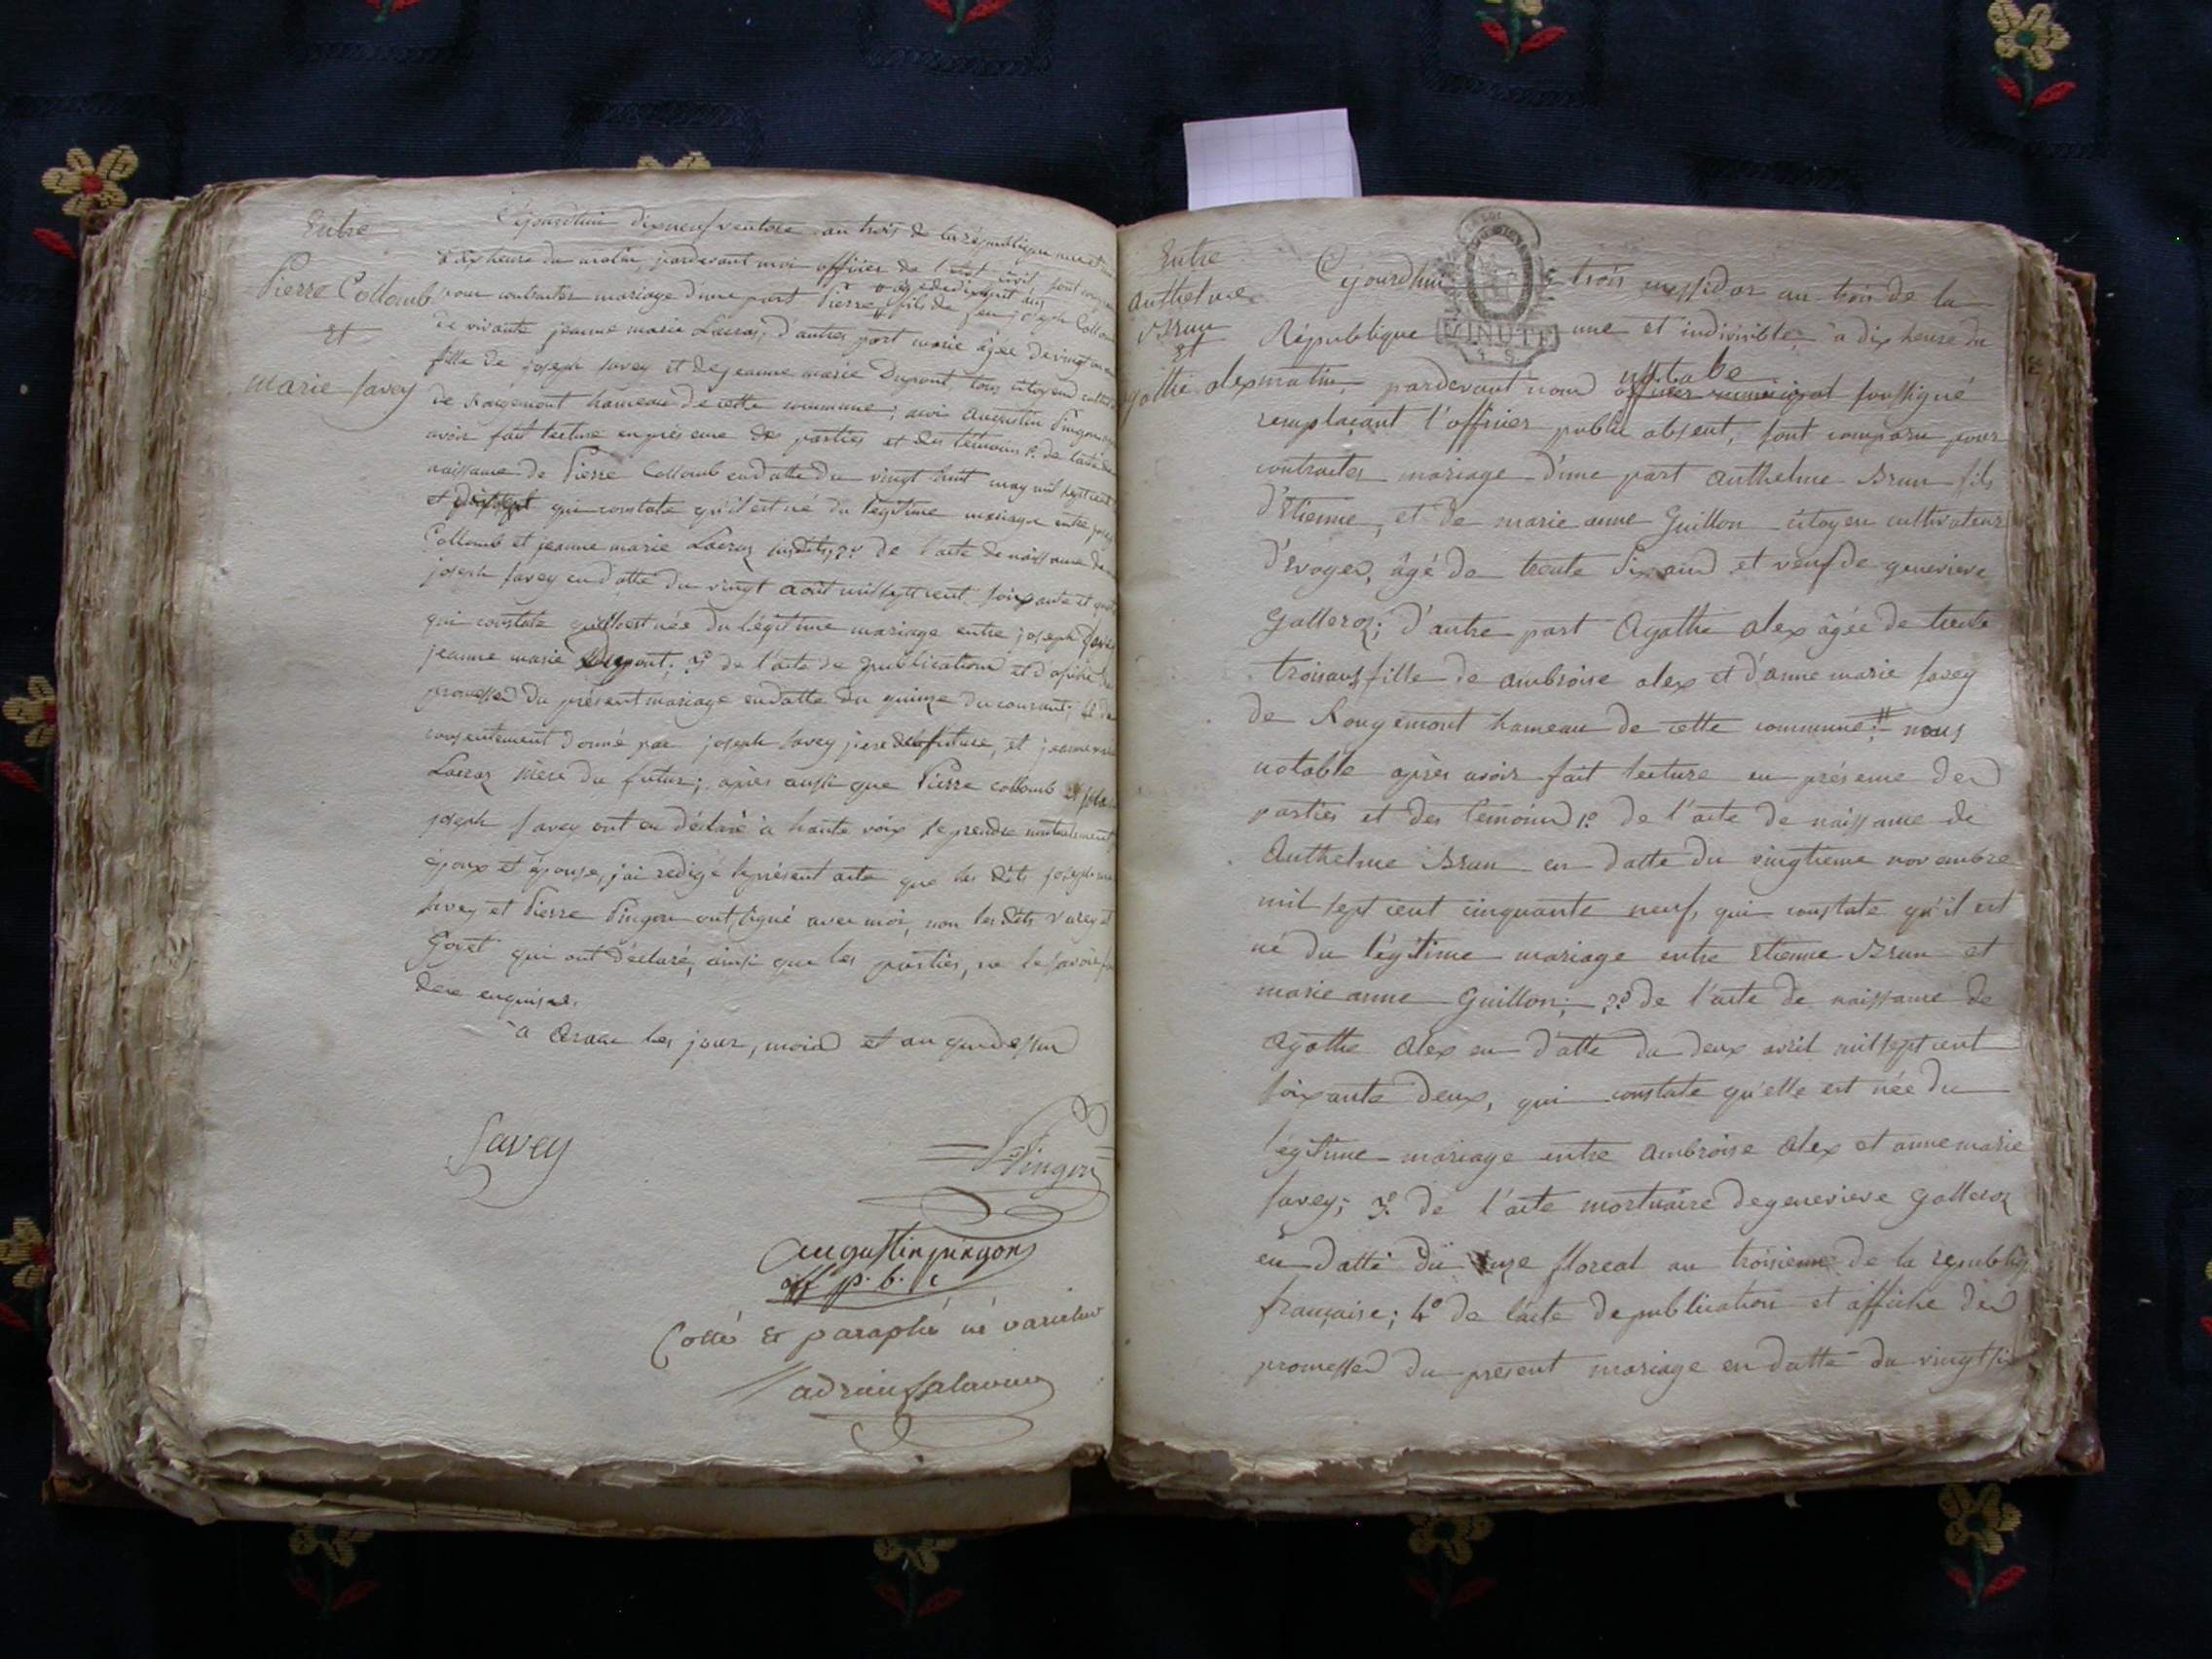 Entre
Pierre Collomb
et
marie savey
Cejourdhui dixneuf ventose an trois de la république une et
à dix heure du matin, pardevant moi officier de l'état civil, sont
agé de dixsept ans
pour contracter mariage d'une part Pierre fils de feu joseph Collomb
de vivante jeanne marie Lacraz, d'autres part marie âgée de vingt
fille de joseph savey et de jeanne marie Dupont, tous citoyens
de Rougemont hameau de cette commune; moi augustin Pingon
avoir fait lecture en présence des parties et des témoins 1º de l'acte de
naissance de Pierre Collomb en datte du vingt huit may mil sept cent
et dixsept qui constate qu'il est né du légitime mariage entre joseph
Collomb et jeanne marie Lacraz susdits; 2º de l'acte de naissance de
joseph savey en datte du vingt août mil sept cent soixante et
qui constate qu'elle est née du légitime mariage entre joseph savey
jeanne marie Dupont; 3º de l'acte de publication et d'afiche de
promesses du présent mariage en datte du quinze du courant; 4º du
consentement donné par joseph savey pere de la future, et jeanne
Lacraz mère du futur; après aussi que Pierre collomb et
joseph savey ont eu déclaré à haute voix se prendre mutuellement
époux et épouse, j'ai redigé le présent acte que les dits joseph
savey et Pierre Pingon ont signé avec moi, non les dits Varey et
Goyet qui ont déclaré, ainsi que les parties, ne le savoir
de ce enquis.
à aranc les jour, mois et an que dessus
Savey
Pingon
augustin pingon
off p. b. c
Cotté et paraphé ne varietur
adrien salavuy
Entre
anthelme
Brun
Et
agathe alex
MINUTE
Cejourdhui trois messidor an trois de la
République une et indivisible, à dix heure du
notabe
matin, pardevant nous officier municipal soussigné
remplaçant l'officier public absent, sont comparu pour
contracter mariage d'une part anthelme Brun fils
d'Etienne, et de marie anne Guillon citoyen cultivateur
d'Evoges, âgé de trente six ans et veuf de genevieve
galleroz; d'autre part Agathe alex âgée de trente
trois ans fille de ambroise alex et d'anne marie savey
de Rougemont hameau de cette commune; nous
notable après avoir fait lecture en présence des
parties et des témoins 1º de l'acte de naissance de
Anthelme Brun en datte du vingtieme novembre
mil sept cent cinquante neuf, qui constate qu'il est
né du légitime mariage entre Etienne Brun et
marie anne Guillon; 2º de l'acte de naissance de
Agathe Alex en datte du deux avril mil sept cent
soixante deux, qui constate qu'elle est née du
légitime mariage entre Ambroise Alex et anne marie
savey; 3º de l'acte mortuaire de genevieve galleroz
en datte du onze floreal an troisieme de la republiq
française; 4º de l'acte de publication et affiche des
promesses du present mariage en datte du vingt six